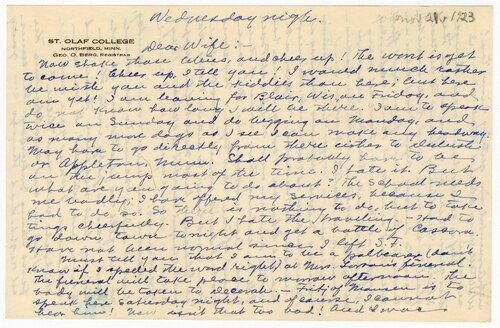 Nov 21, 1923
Wednesday night.
ST. OLAF COLLEGE
NORTHFIELD, MINN.
GEO. O. BERG, REGISTRAR
Dear Wife :-
Now shake them blues, and cheer up! The worst is yet
to come! Cheer up, I tell you! I would much rather
be with you and the kiddies than here; but here I
am yet! I am leaving for Blair, Wis. on Friday, and
do not know how long I will be there. I am to speak
twice on Sunday and do begging on Monday, and
as many more days as I see I can make any headway.
May have to go directly from there either to Duluth
or Appleton, Minn. Shall probably have to be
on the jump most of the time. I hate it. But
what are you going to do about? The school needs
me badly, I have offered my services, because I
had to do so. So there is nothing to do, but to take
things cheerfully. But I hate the traveling - Had to
go down town to night and get a bottle of Cascara.
Have not been normal since I left S.F.
Must tell you that I am to be a pallbearer (don't
know if I spelled the word right) at Mrs. funeral.
The funeral will take place to-morrow afternoon, the
body will be taken to Decorah. - Fritjof Nansen is to
speak here Saturday night, and of course, I can not
hear him! Now isn't that too bad! And I was